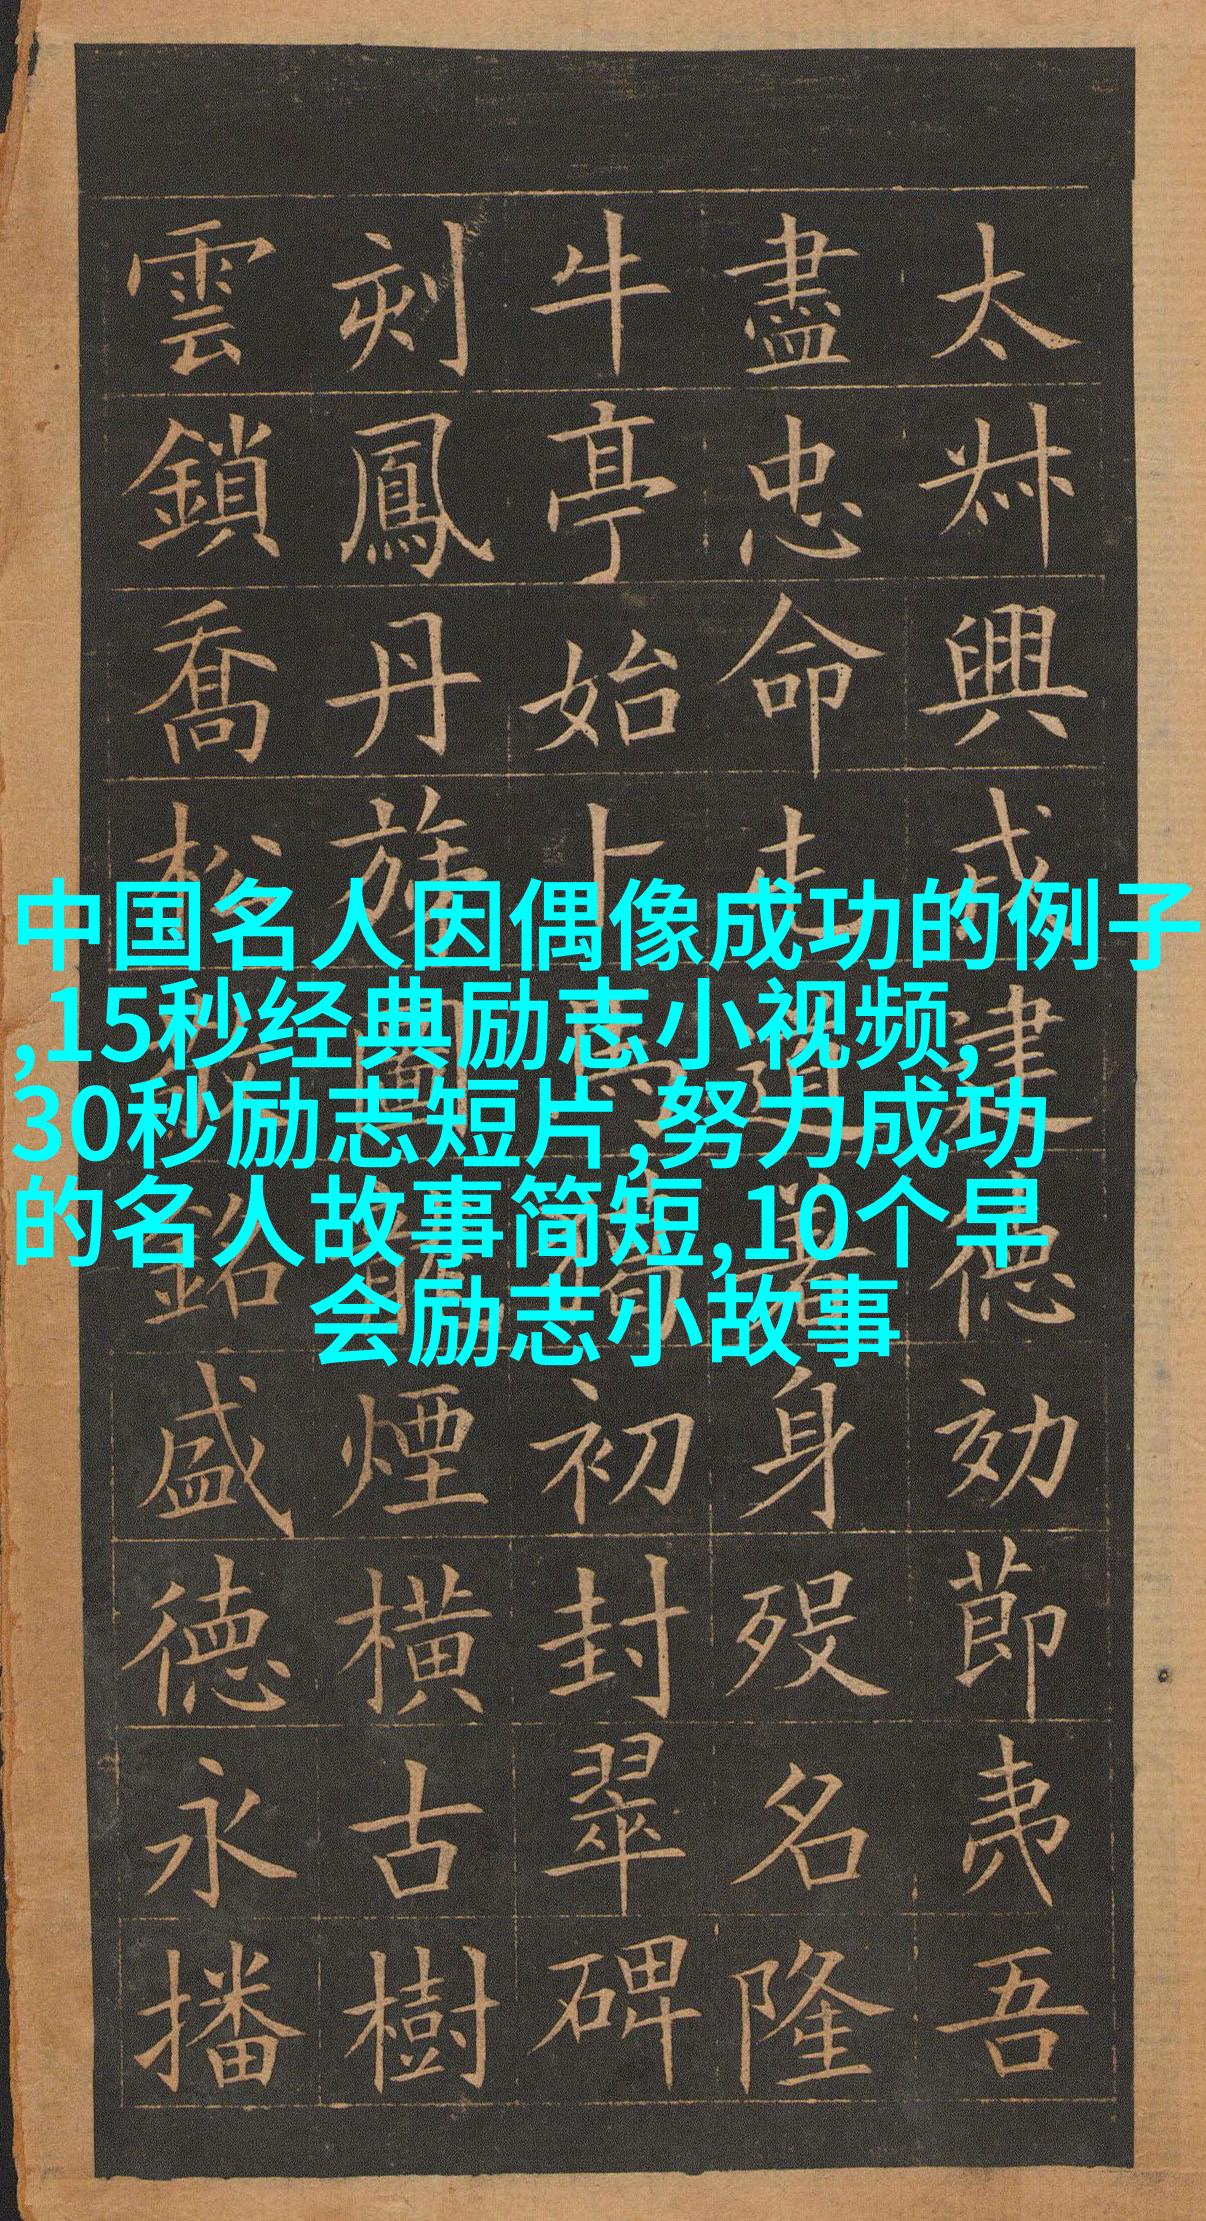 太叔興成建德効節夷吾
盡忠命屯道著身歿名隆
牛亭始卜馬初封翠碑
刻鳳丹旐圖龍煙橫古樹
雲鎖喬松敬銘盛德永播
中国名人因偶像成功的例子
,15秒经典励志小视频,
30秒励志短片,努力成功
的名人故事简短,10个早
会励志小故事